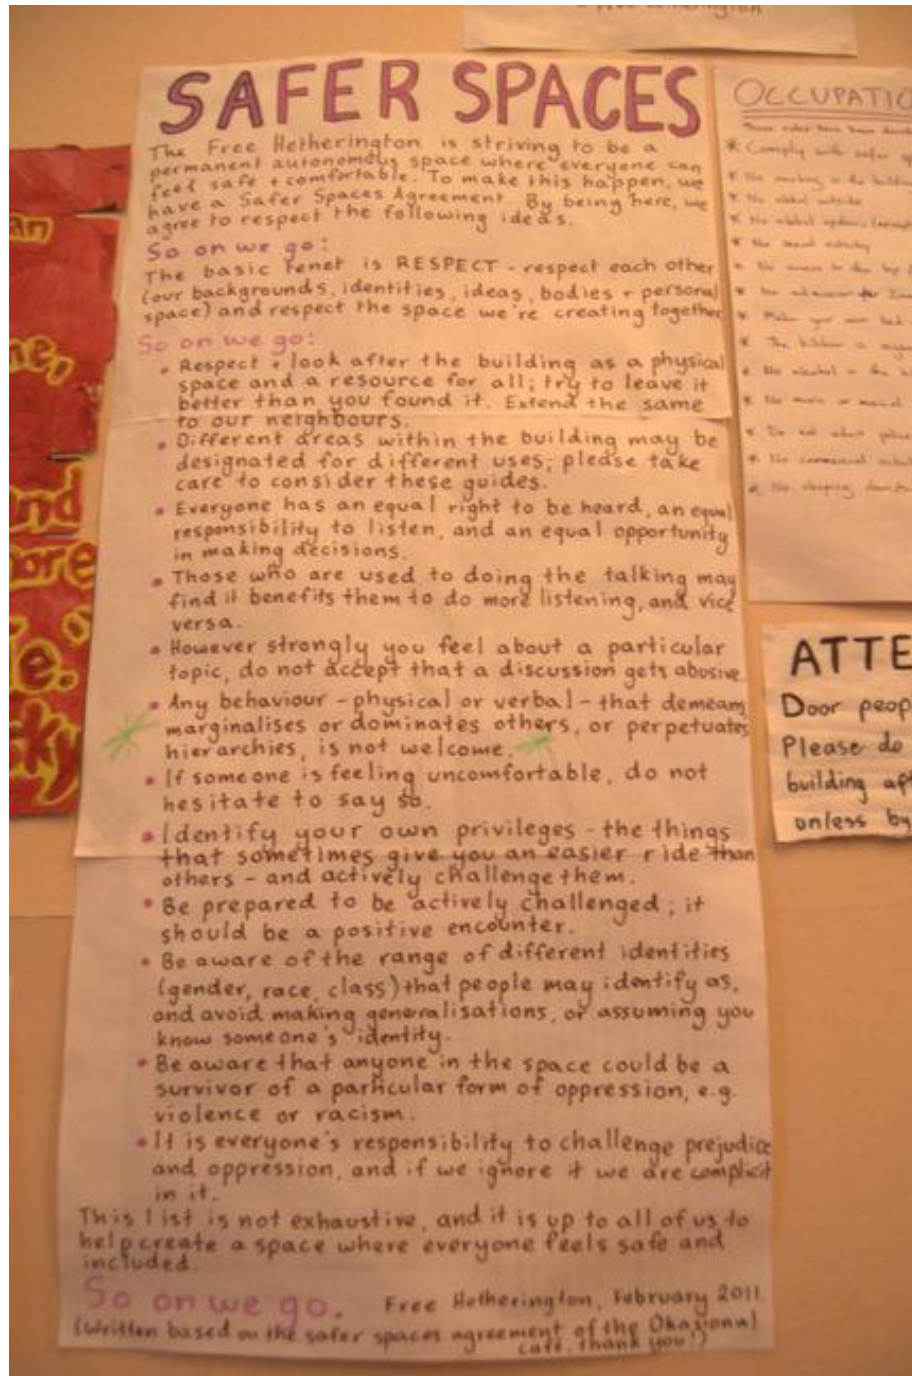 SAFER SPACES
The Free Hetherington is striving to be a
permanent autonomous space where everyone can
feel safe + comfortable. To make this happen, we
have a Safer Spaces Agreement. By being here, we
agree to respect the following ideas.
So on we go:
The basic tenet is RESPECT - respect each other
(our backgrounds, identities, ideas, bodies + personal
space) and respect the space we're creating together
So on we go:
• Respect + look after the building as a physical
space and a resource for all; try to leave it
better than you found it. Extend the same
to our neighbours.
• Different areas within the building may be
designated for different uses; please take
care to consider these guides.
• Everyone has an equal right to be heard, an equal
responsibility to listen, and an equal opportunity
in making decisions.
• Those who are used to doing the talking may
find it benefits them to do more listening, and vice
versa.
• However strongly you feel about a particular
topic, do not accept that a discussion gets abusive
• Any behaviour - physical or verbal - that demeans
marginalises or dominates others, or perpetuates
hierarchies, is not welcome.
• If someone is feeling uncomfortable, do not
hesitate to say so.
• Identify your own privileges - the things
that sometimes give you an easier ride than
others - and actively challenge them.
• Be prepared to be actively challenged; it
should be a positive encounter.
• Be aware of the range of different identities
(gender, race, class) that people may identify as,
and avoid making generalisations, or assuming you
know someone's identity.
• Be aware that anyone in the space could be a
survivor of a particular form of oppression, e.g.
violence or racism.
• It is everyone's responsibility to challenge prejudice
and oppression, and if we ignore it we are complicit
in it.
This list is not exhaustive, and it is up to all of us to
help create a space where everyone feels safe and
included.
So on we go. Free Hetherington, February 2011.
(Written based on the safer spaces agreement of the Okasional
café, thank you!)
OCCUPATIO
* Comply with safer sp
* No smoking in the building
* No alcohol outside
* No sexual activity
* Make your own bed
* The kitchen is
* No alcohol in the
* No music or
* Do not
* No commercial
* No sleeping
ATTE
Door peop
Please do
building aft
unless by
an
me,
and
more
e.
sky